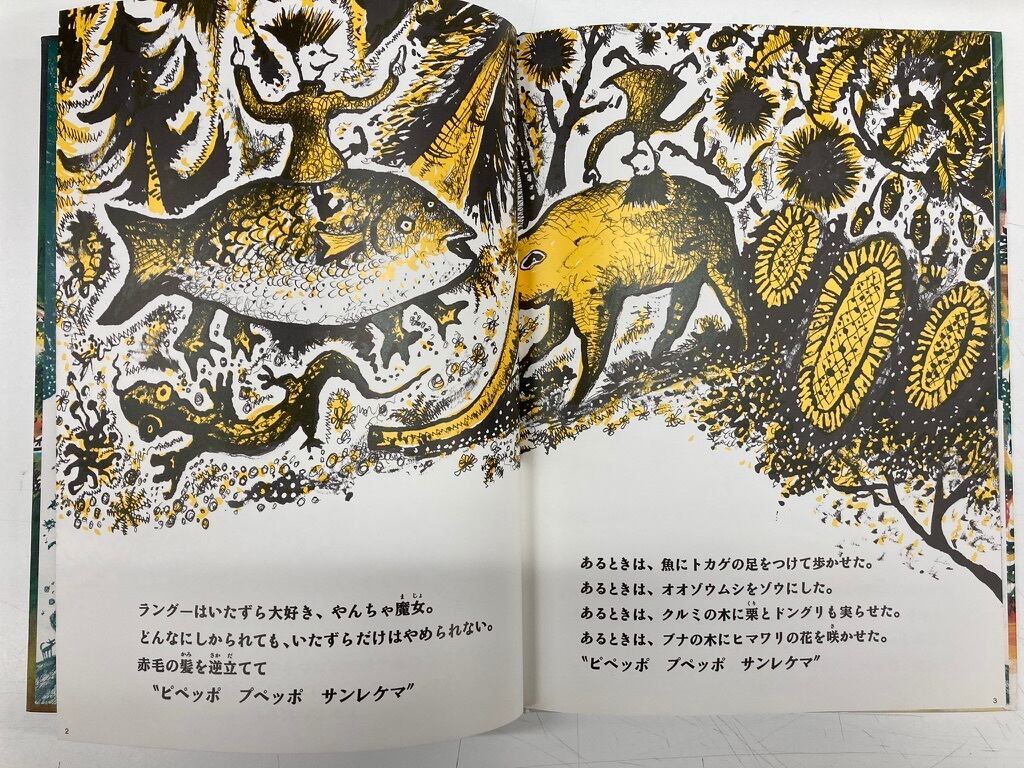 ラングーはいたずら大好き、やんちゃ魔女。
どんなにしかられても、いたずらだけはやめられない。
赤毛の髪を逆立てて
“ピペッポ　プペッポ　サンレケマ”
2
あるときは、魚にトカゲの足をつけて歩かせた。
あるときは、オオゾウムシをゾウにした。
あるときは、クルミの木に栗とドングリも実らせた。
あるときは、ブナの木にヒマワリの花を咲かせた。
“ピペッポ　プペッポ　サンレケマ”
3